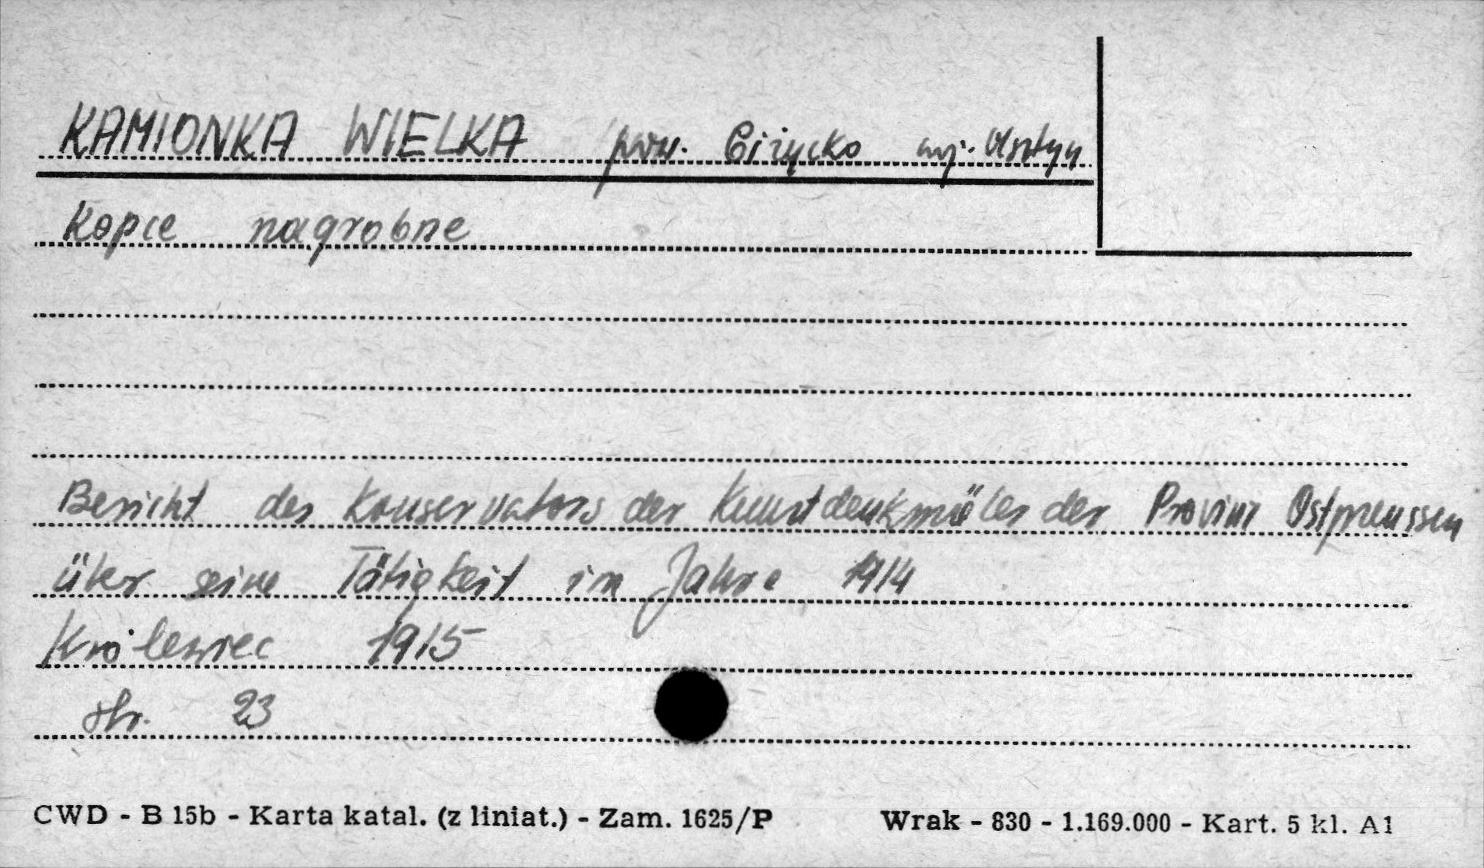 KAMIONKA WIELKA pow. Giżycko woj. Olsztyn
Kopce nagrobne
Bericht des Konservators der Kunstdenkmäler der Provinz Ostpreussen
über seine Tätigkeit im Jahre 1914
Królewiec 1915
str. 23
CWD - B 15b - Karta katal. (z liniat.) - Zam. 1625/P Wrak - 830 - 1.169.000 - Kart. 5 kl. A1